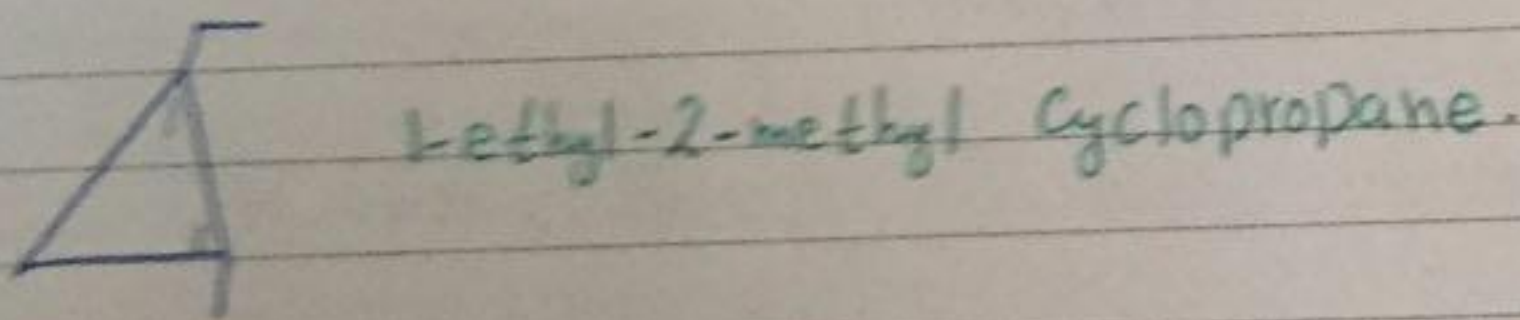 1-ethyl-2-methyl Cyclopropane.